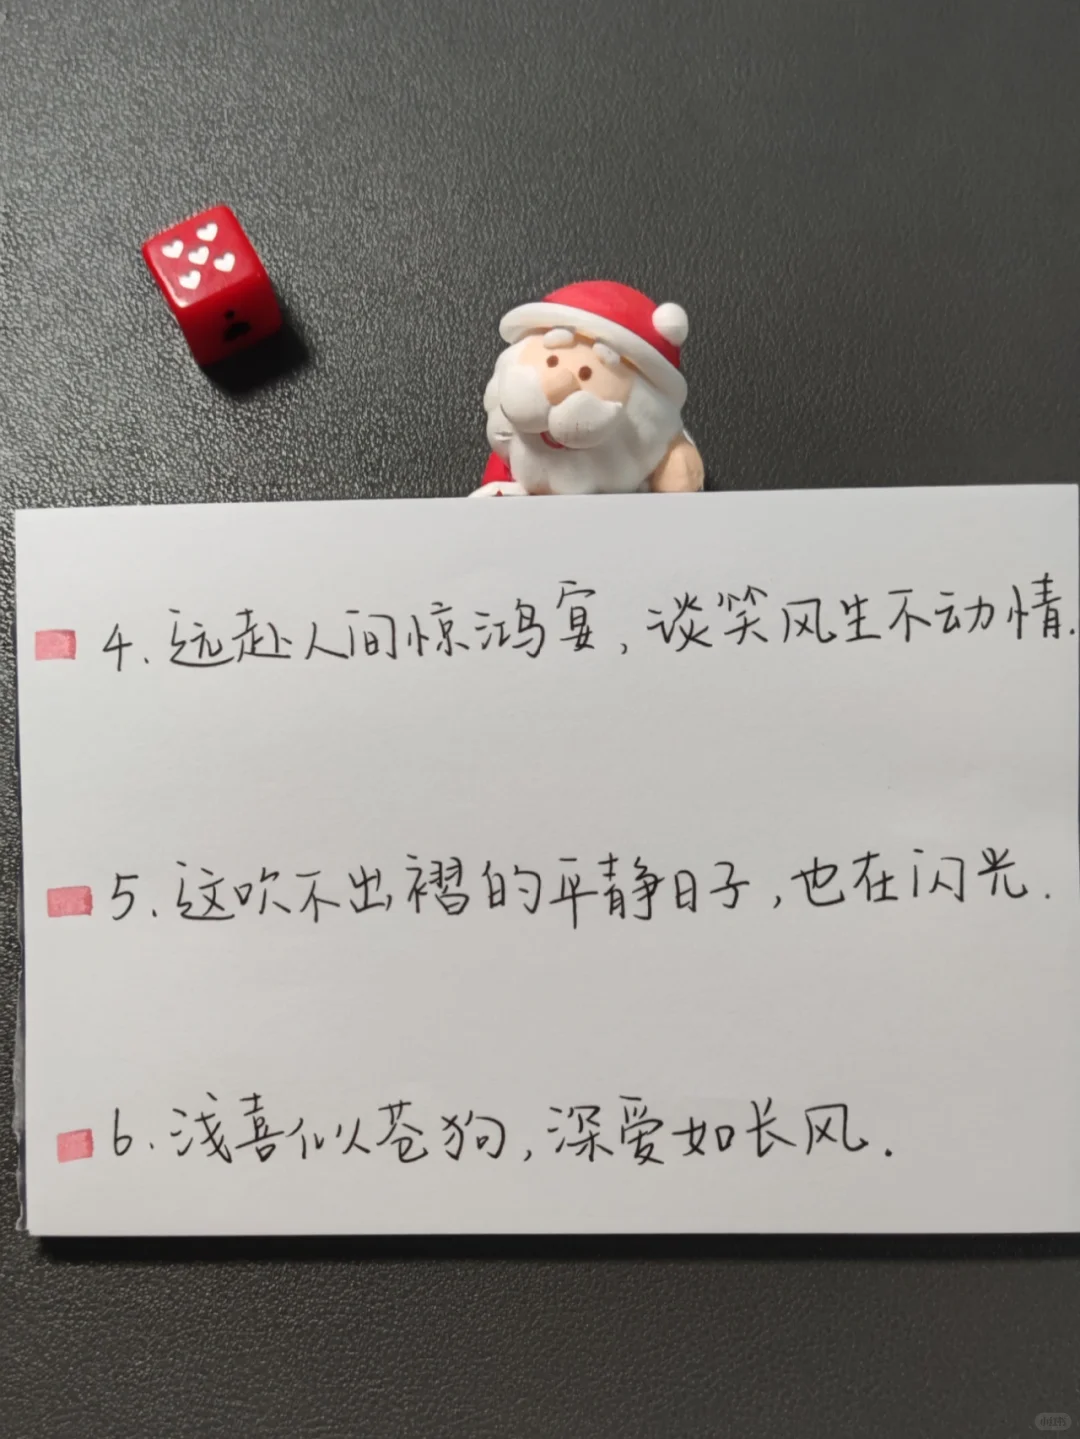 4. 远赴人间惊鸿宴, 谈笑风生不动情.
5. 这吹不出褶的平静日子, 也在闪光.
6. 浅喜似苍狗, 深爱如长风.